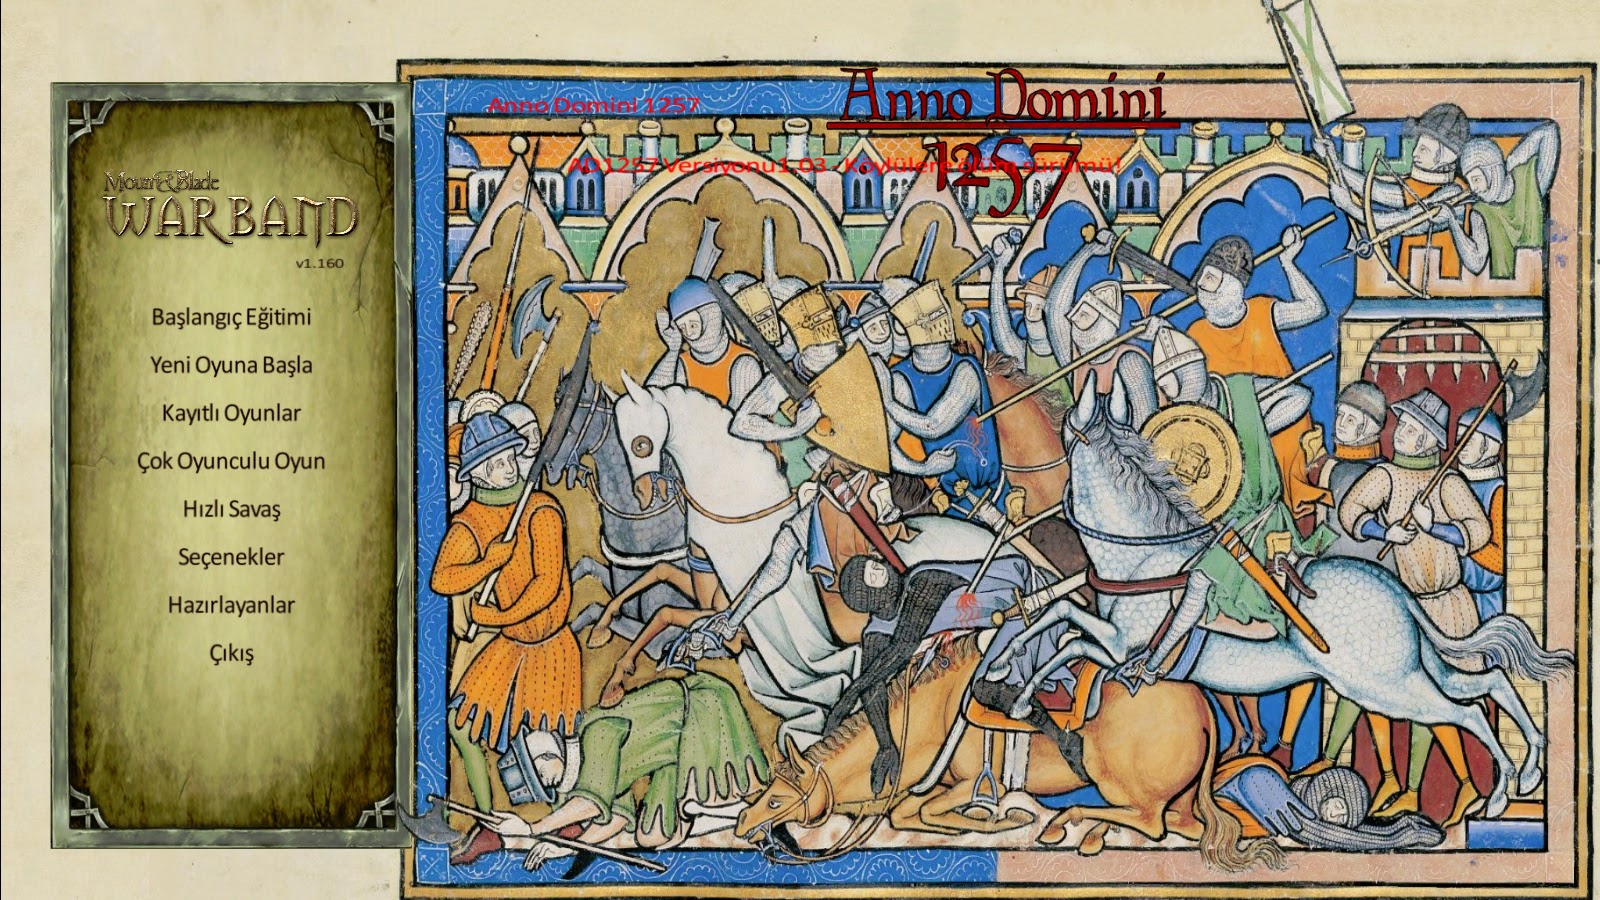 Mount & Blade
WARBAND
v1.160
Başlangıç Eğitimi
Yeni Oyuna Başla
Kayıtlı Oyunlar
Çok Oyunculu Oyun
Hızlı Savaş
Seçenekler
Hazırlayanlar
Çıkış
Anno Domini 1257
Anno Domini
1257
AD1257 Versiyonu1.03 - Köylülere ölüm sürümü!